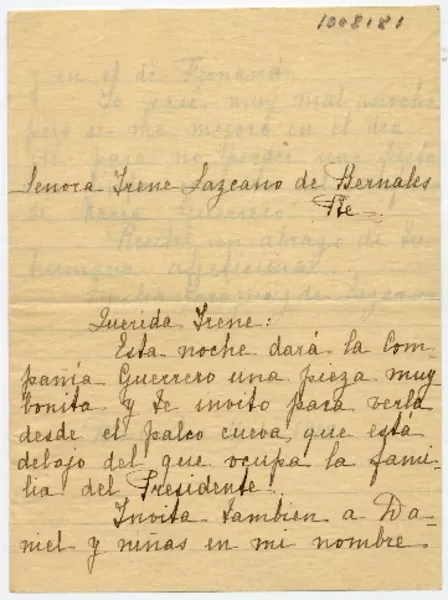 1008181
Senora Irene Lazcano de Bernales
Pte.
Querida Irene:
Esta noche dará la Com
pañía Guerrero una pieza muy
bonita y te invito para verla
desde el palco cueva, que está
debajo del que ocupa la fami-
lia del Presidente.
Invita tambien a Da-
niel y niñas en mi nombre